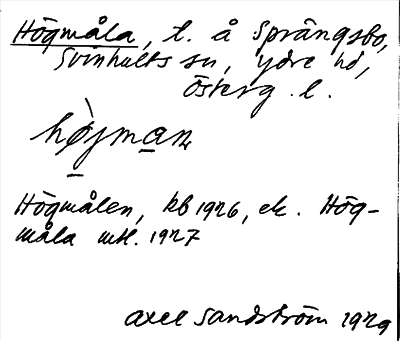 Högmåla, t. å Språngsbo,
Svinhults sn, Ydre hd,
Österg. l.
Högmålen, kb 1926, ek. Hög-
måla mtl. 1927
Axel Sandström 1929